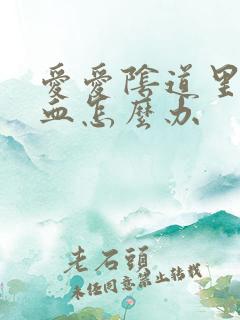 愛愛陰道里
血怎麼办
老石頭
未经同意禁止转载